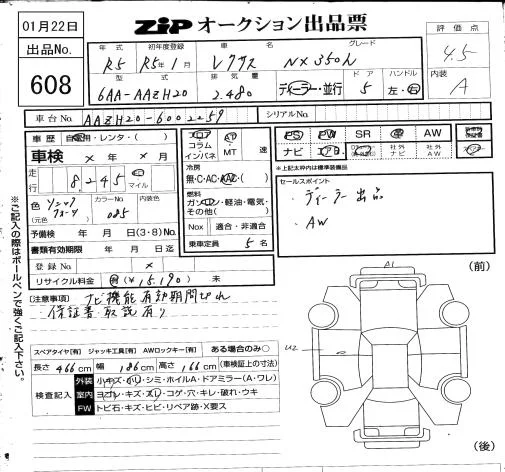 01月22日
ZIP オークション出品票
出品No.
608
年式 初年度登録 車名 グレード
R5 R5年1月 レクサス NX350h
型式 排気量 ドア ハンドル
6AA-AAZH20 2.480 ディーラー・並行 5 左・右
評価点
4.5
内装
A
車台No. AAZH20-6002259 シリアルNo.
車歴 自家用・レンタ・( )
車検 × 年 × 月
走行 8.245 km マイル
色 ソニック クォーツ カラーNo. 085 内装色
(元色)
予備検 年 月 日(3・8)No.
書類有効期限 年 月 日迄
登録No. ×
リサイクル料金 有(¥15.190)
フロア コラム インパネ AT MT 速
冷房
無・C・AC・AAC・( )
燃料
ガソリン・軽油・電気・その他( )
Nox 適合・非適合
乗車定員 5 名
PS PW SR 革 AW
ナビ エアB 社外ナビ 社外AW
*上記太枠内は標準装備品
セールスポイント
・ディーラー出品
・AW
(注意事項) ナビ機能有効期間切れ
保証書、取説有り
スペアタイヤ[有] ジャッキ工具[有] AWロックキー[有] ある場合のみ○
長さ 466cm 幅 186cm 高さ 166cm (車検証上の寸法)
検査記入
外装 小キズ・凹・シミ・ホイルA・ドアミラー(A・ワレ)
室内 ヨゴレ・キズ・スレ・コゲ・穴・キレ・破れ・ウキ
FW トビ石・キズ・ヒビ・リペア跡・X要ス
※ご記入の際はボールペンで強くご記入下さい。
(前)
A1
U2
(後)